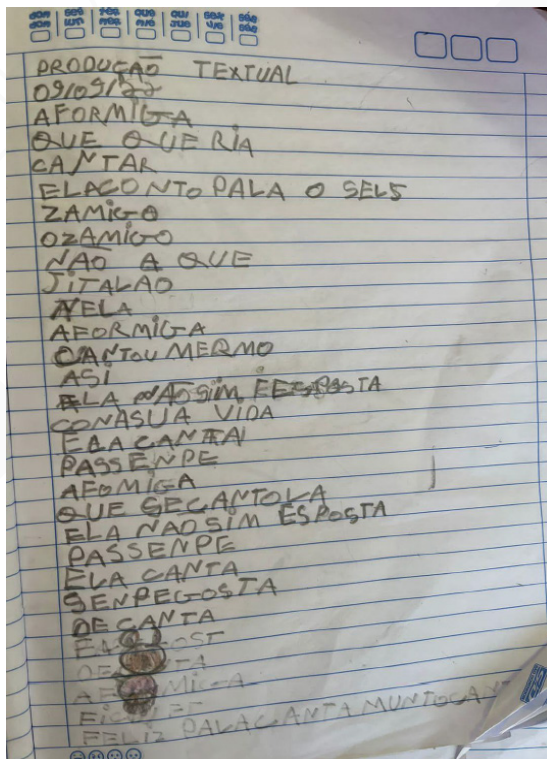 DOM SEG TER QUA QUI SEX SÁB
PRODUÇÃO TEXTUAL
09/09/22
AFORMIGA
QUE QUERIA
CANTAR
ELACONTO PALA O SEUS
ZAMIGO
OZAMIGO
NÃO A QUE
JITALAO
NELA
AFORMIGA
CANTOU MERMO
ASI
ELA NAO SIM EESPOSTA
CONASUA VIDA
ELA CANTA
PASSENPE
AFOMIGA
QUE SECANTOLA
ELA NAO SIM ESPOSTA
PASSENPE
ELA CANTA
SENPEGOSTA
DE CANTA
FELIZ PALACANTA MUNTOCAN